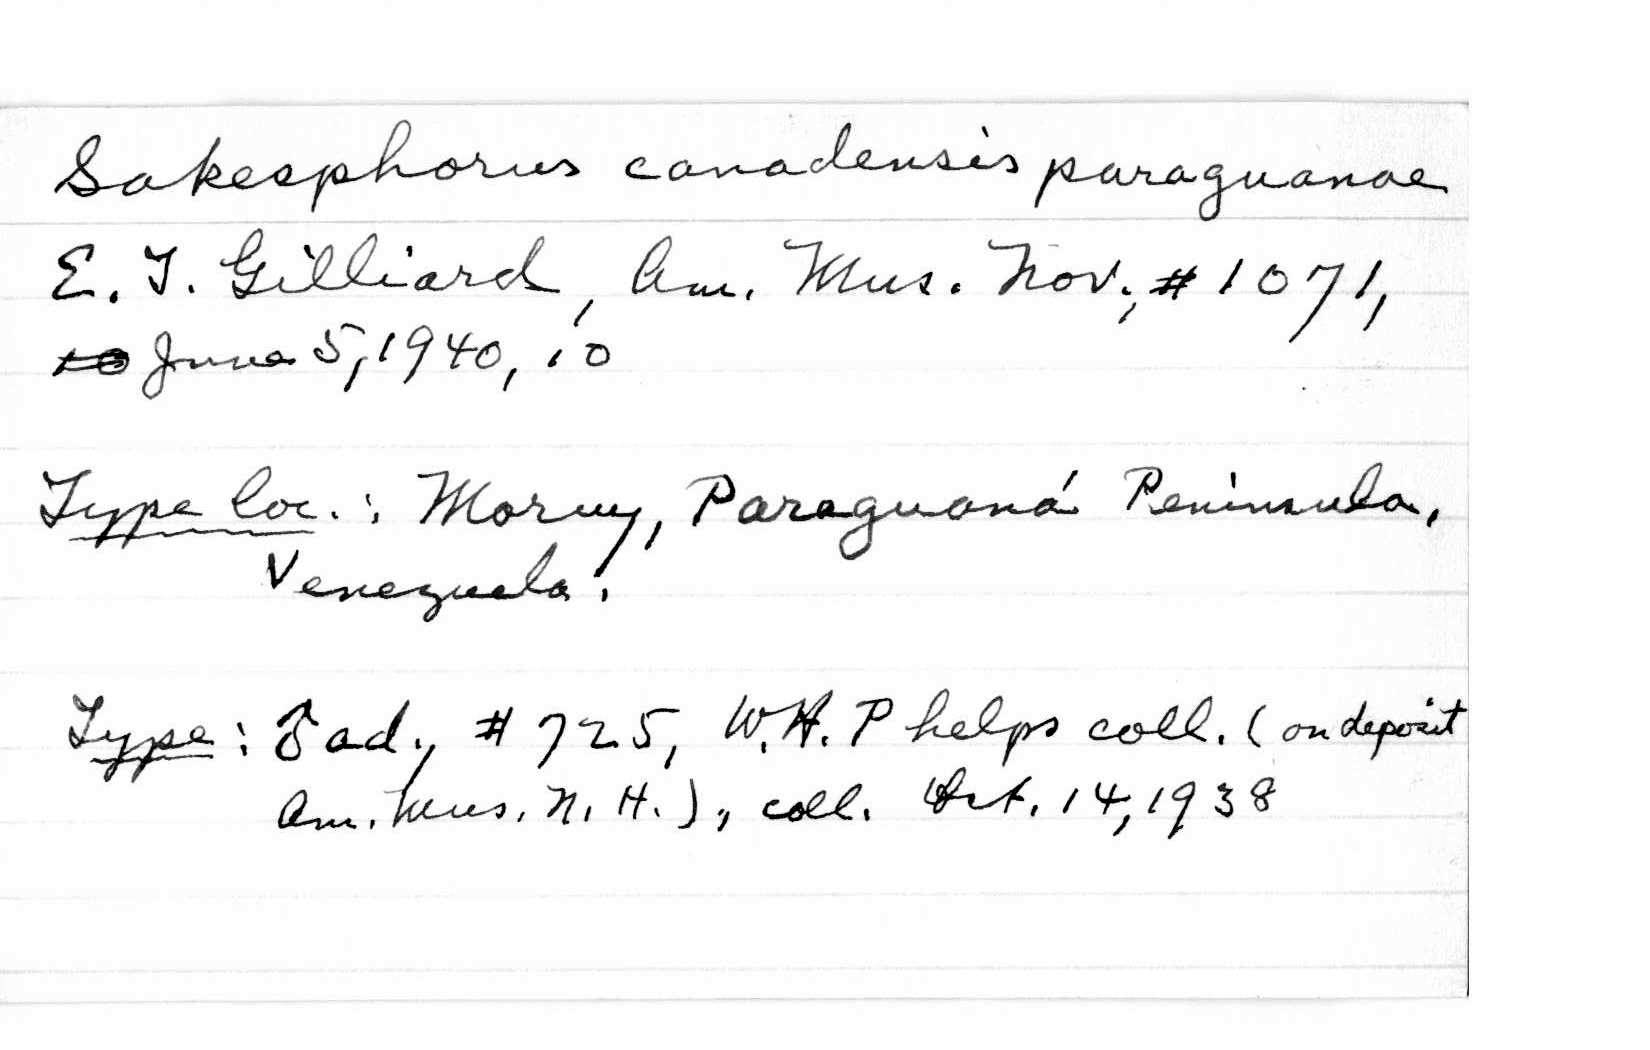 Sakesphorus canadensis paraguanae
E. T. Gilliard, Am. Mus. Nov., #1071,
June 5, 1940, 10
Type loc.: Moruy, Paraguaná Peninsula,
Venezuela.
Type: ♂ ad., #725, W.H. Phelps coll. (on deposit
Am. Mus. N. H.), coll. Oct. 14, 1938